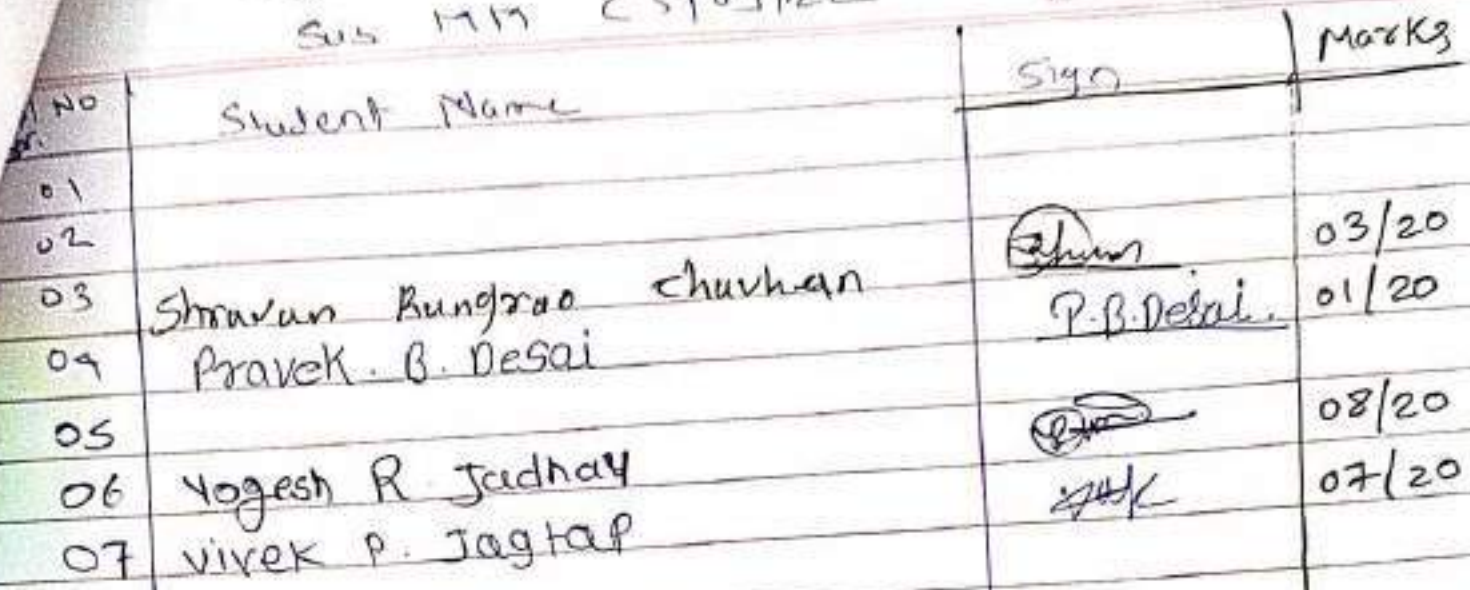 Sub MM
NO Student Name Sign Marks
01
02
03 Shravan Rungrao Chuvhan 03/20
04 Pravek. B. Desai P.B.Desai. 01/20
05
06 Yogesh R. Jadhav 08/20
07 Vivek P. Jagtap 07/20